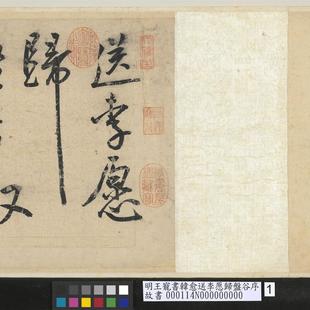 送李愿
歸
又
明王寵書韓愈送李愿歸盤谷序
故書 000114N000000000
1